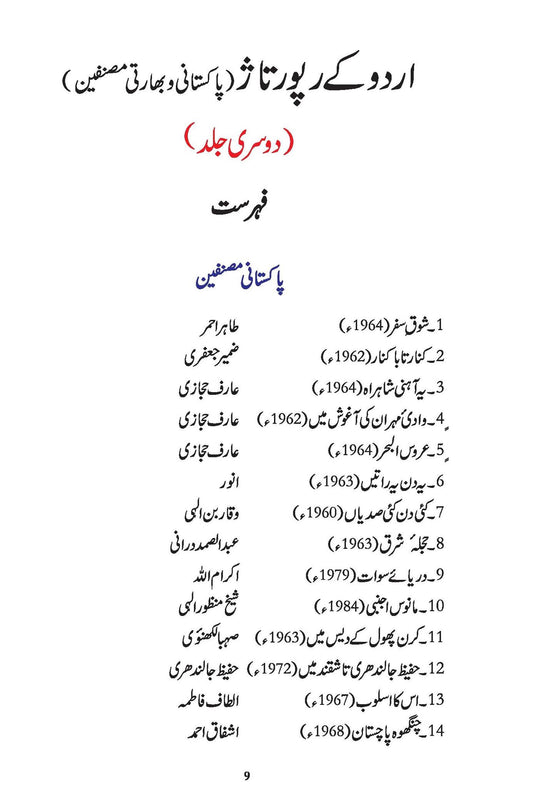 اردو کے رپورتاژ (پاکستانی و بھارتی مصنفین)
(دوسری جلد)
فہرست
پاکستانی مصنفین
1۔شوقِ سفر(1964ء) طاہر احمر
2۔کنار تا با کنار(1962ء) ضمیر جعفری
3۔یہ آہنی شاہراہ(1964ء) عارف حجازی
4۔وادیٔ مہران کی آغوش میں(1962ء) عارف حجازی
5۔عروس البحر(1964ء) عارف حجازی
6۔یہ دن یہ راتیں(1963ء) انور
7۔کئی دن کئی صدیاں(1960ء) وقار بن الہی
8۔حجلۂ شرق(1963ء) عبدالصمد درانی
9۔دریائے سوات(1979ء) اکرام اللہ
10۔مانوس اجنبی(1984ء) شیخ منظور الہی
11۔کرن پھول کے دیس میں(1963ء) صہبا لکھنوی
12۔حفیظ جالندھری تاشقند میں(1972ء) حفیظ جالندھری
13۔اس کا اسلوب(1967ء) الطاف فاطمہ
14۔چنگھوہ پاچستان(1968ء) اشفاق احمد
9